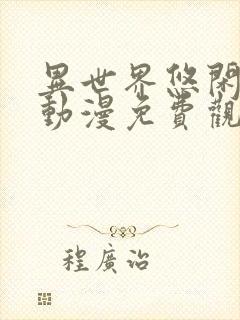 異世界悠閑
動漫免費觀
程廣治